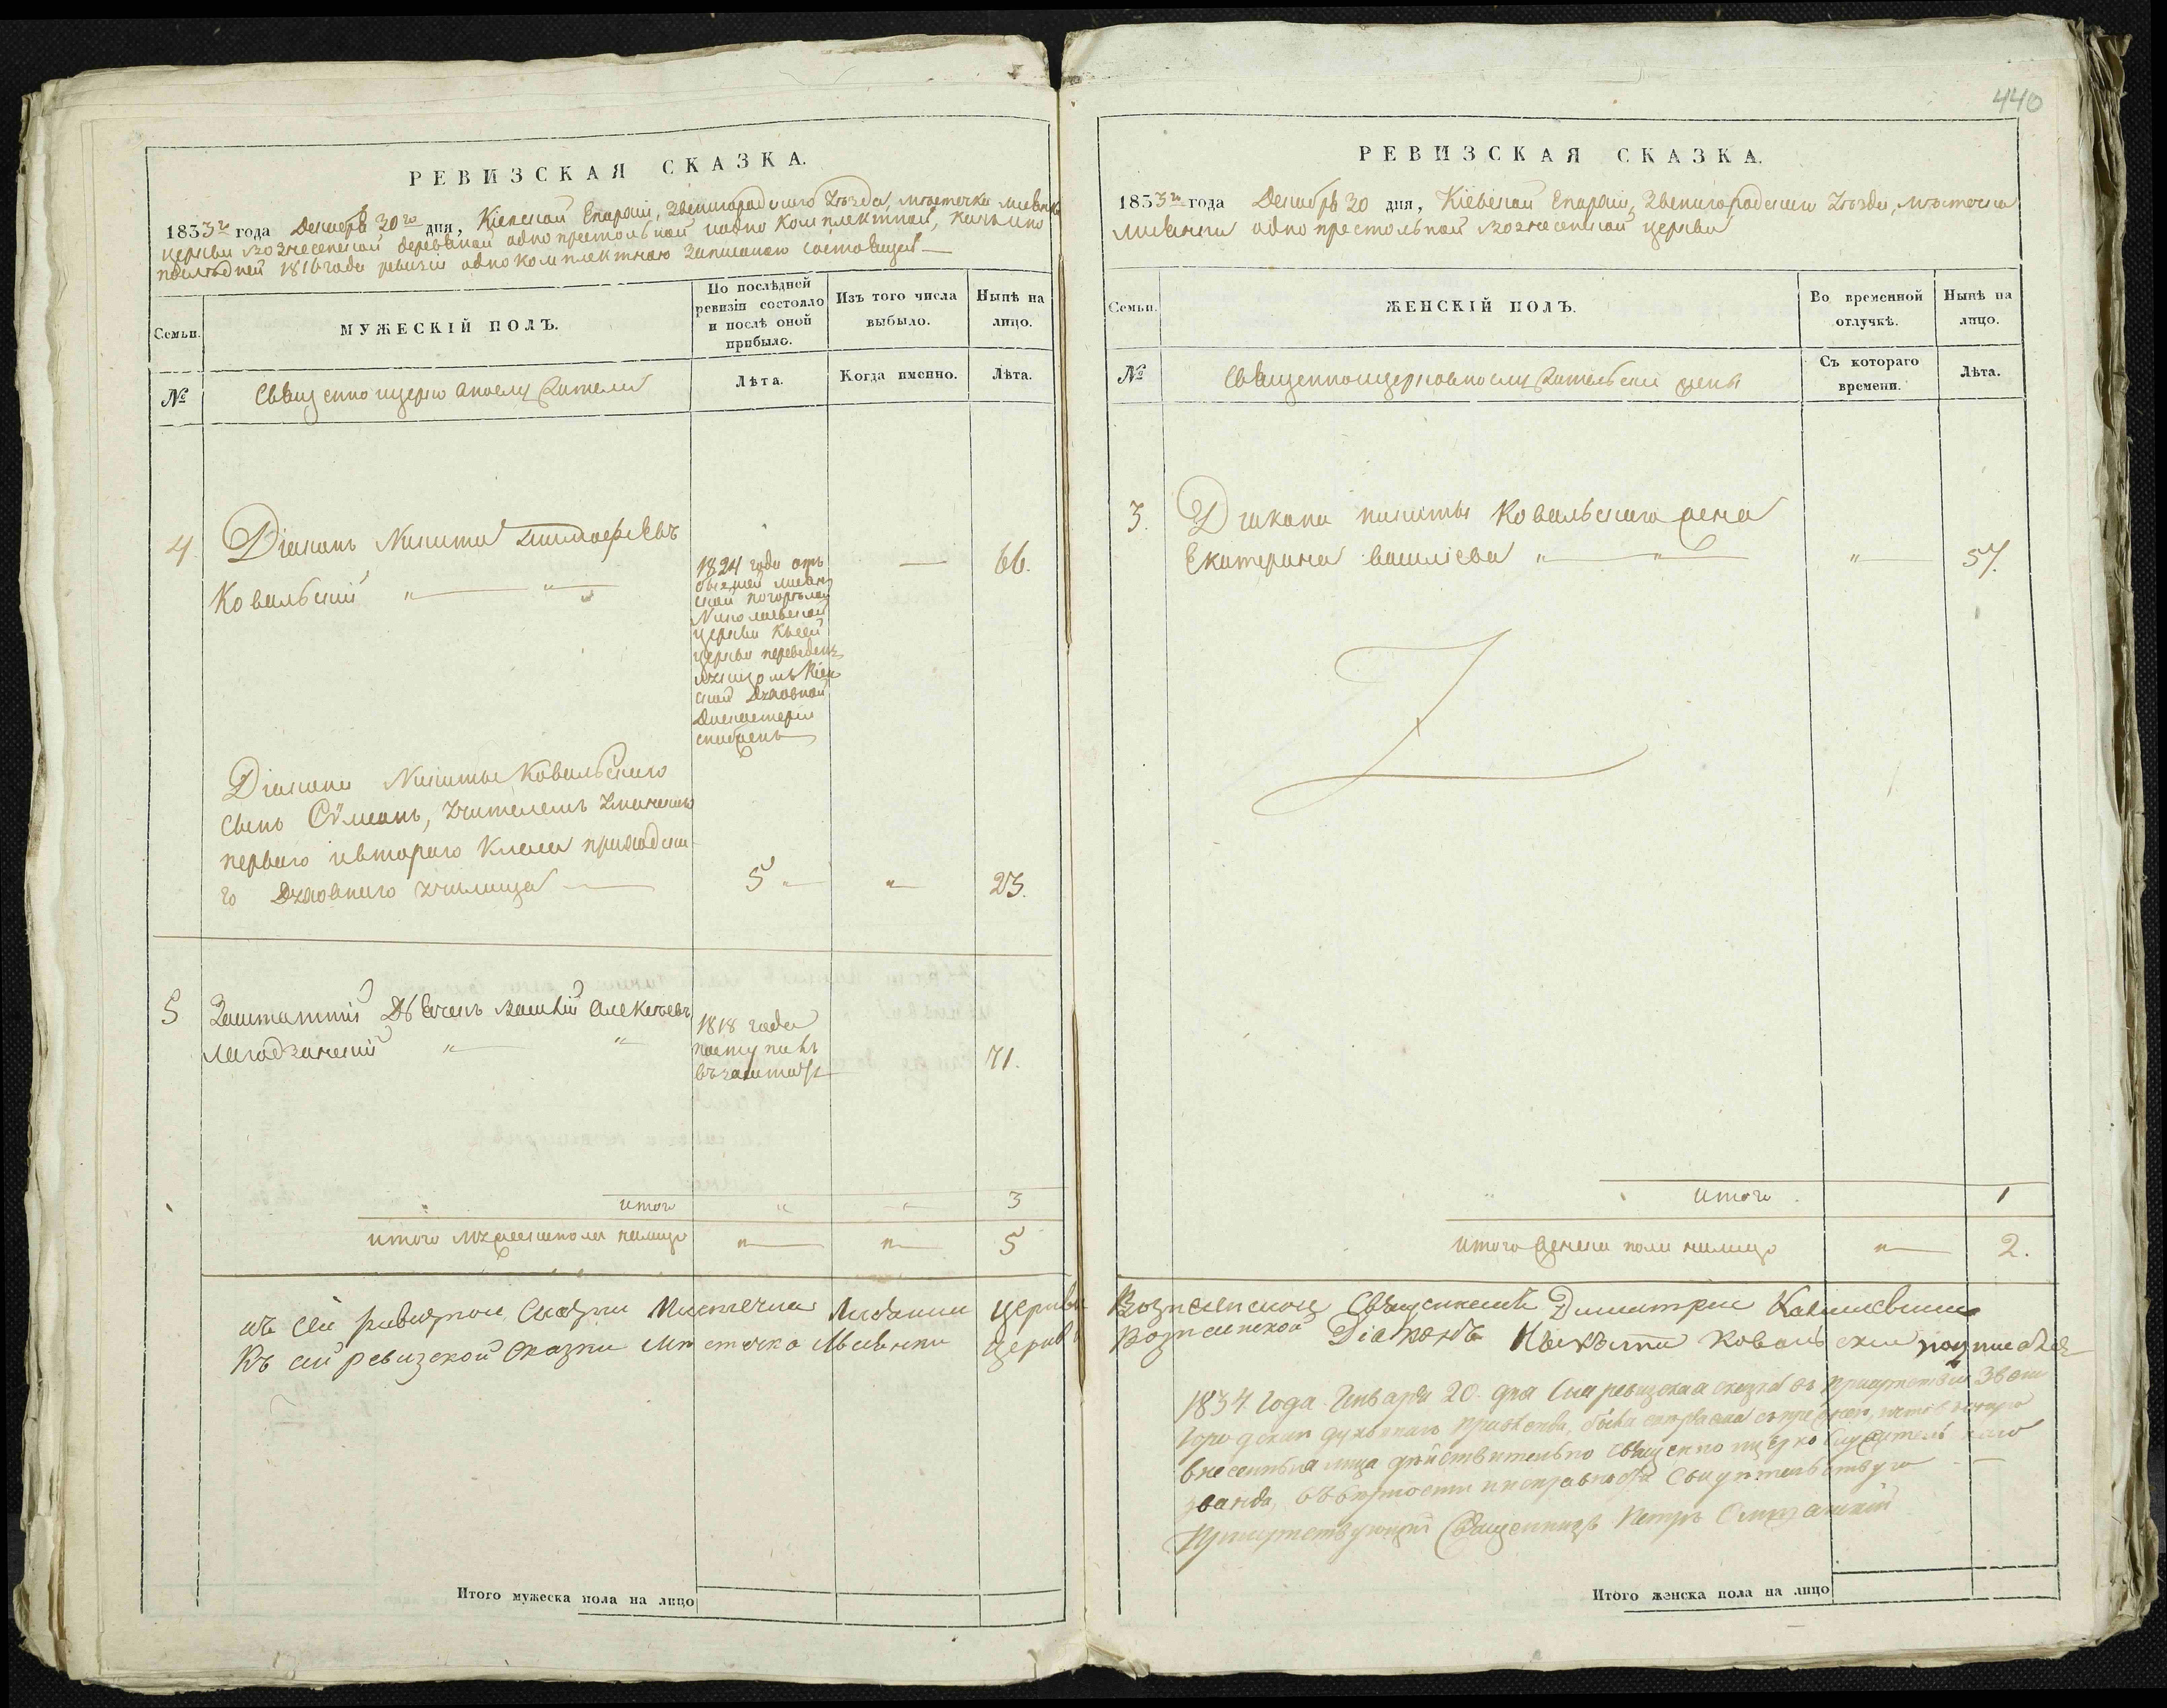 440
РЕВИЗСКАЯ СКАЗКА.
1833го года Декабря 30го дня, Кіевской Епархіи, Звенигородскаго Уѣзда, мѣстечка Лисянки
церкви Вознесенской деревяной однопрестольной и однокомплектной, какъ и по
последней 1816 года ревизіи однокомплектною записаною состоящей
Семьи.
МУЖЕСКІЙ ПОЛЪ.
По послѣдней ревизіи состояло и послѣ оной прибыло.
Изъ того числа выбыло.
Нынѣ на лицо.
№
Священноцерковнослужители
Лѣта.
Когда именно.
Лѣта.
4.
Діаконъ Никита Тимофѣевъ
Ковальскій " — " —
1824 года отъ
бывшей лисян
ской погорѣлой
Николаевской
церкви к сей
церкви переведенъ
указомъ Кіев
ской Духовной
Дикастеріи
снабженъ
—
66.
Діакона Никиты Ковальскаго
сынъ Сѵмеонъ, учителемъ Уманскаго
перваго и втораго класа приходска
го Духовнаго училища —
5 "
"
23.
5
Заштатный Дьячекъ Василій Алексѣевъ
" "
1818 года
поступилъ
въ заштатъ
71.
" итого " " 3
итого мужеска пола налицо " — " — 5
къ сей ревизкои сказки Мистечка Лисянки церкви Вознесенскои Священникъ Димитрии
Къ сей ревизской сказки Местечка Лисянки Церкви Вознесенской Діаконъ Никита Ковальскии
Итого мужеска пола на лицо
РЕВИЗСКАЯ СКАЗКА.
1833го года Декабря 30 дня, Кіевской Епархіи, Звенигородскаго Уѣзда, мѣстечка
Лисянки однопрестольной Вознесенской церкви
Семьи.
ЖЕНСКІЙ ПОЛЪ.
Во временной отлучкѣ.
Нынѣ на лицо.
№
Священноцерковнослужительскіе жены
Съ котораго времени.
Лѣта.
3.
Діакона Никиты Ковальскаго жена
Екатерина Василіева " — " —
" —
57.
" итого 1
Итого женска пола налицо " — 2.
1834 Года Генваря 20. дня Сия ревизская сказка въ присутствіи Звени
городскаго духовнаго правленія, была
внесенныя лица дѣйствительно священноицерковнослужительскаго
званія, въ вѣрности и исправности свидѣтельствую
Присутствующій Священникъ Петръ
Итого женска пола на лицо